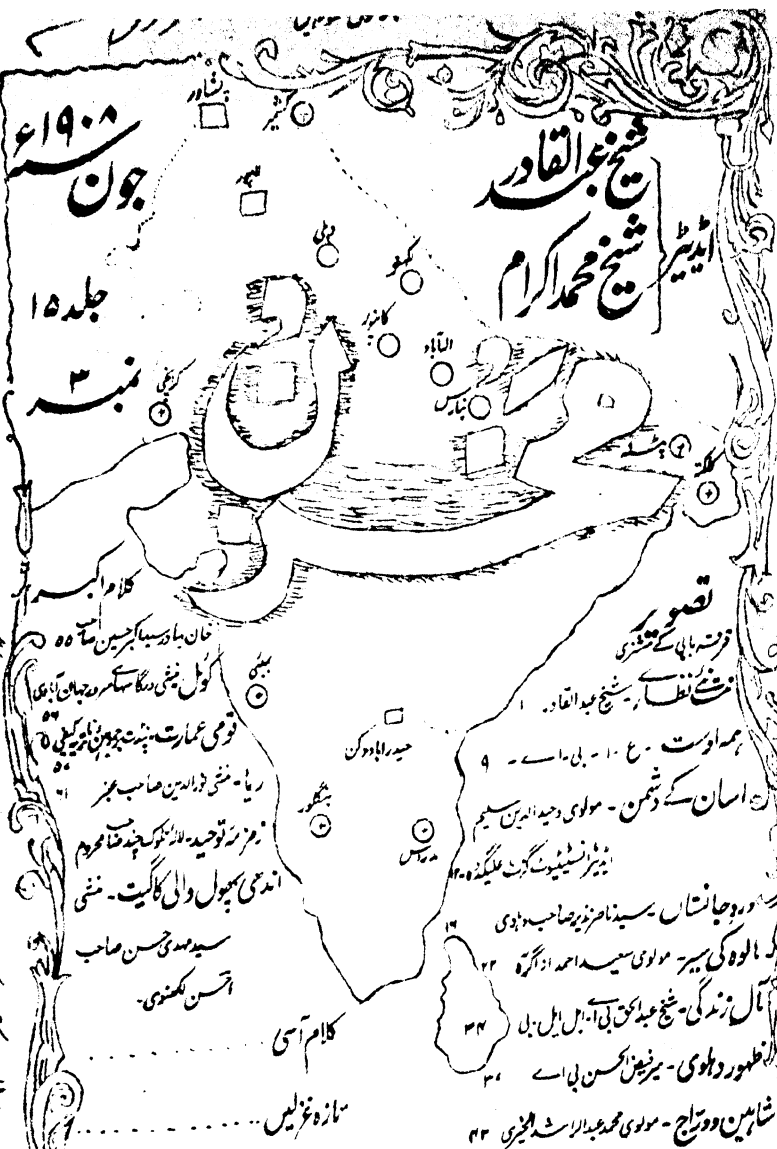 ایڈیٹر
شیخ عبدالقادر
شیخ محمد اکرام
جون
۱۹۰۸ء
جلد ۱۵
نمبر ۳
مخزن
پشاور
کشمیر
لاہور
دہلی
لکھنؤ
کانپور
الہ آباد
بنارس
پٹنہ
کلکتہ
کراچی
بمبئی
حیدرآباد دکن
بنگلور
مدراس
تصویر
نظارے - شیخ عبدالقادر ۱
ہمہ اوست - ع - ا - بی - اے - ۹
انسان کے دشمن - مولوی وحید الدین سلیم
ایڈیٹر انسٹیٹیوٹ گزٹ علیگڈہ - ۱۲
درد جانستاں - سید ناصر نذیر صاحب دہلوی ۱۶
مالوہ کی سیر - مولوی سعید احمد از آگرہ ۲۲
مآل زندگی - شیخ عبدالحق بی اے - ایل ایل بی ۳۴
ظہور دہلوی - میر فیض الحسن بی اے
شاہین و درّاج - مولوی محمد عبدالراشد الخیری ۴۳
کلام اکبر
خان بہادر سید اکبر حسین صاحب ۵۵
کوئل - منشی درگا سہاے سرور جہان آبادی ۵۶
قومی عمارت - پنڈت کیفی
ریا - منشی نورالدین صاحب عنبر ۶۱
زمزمہ توحید - لالہ تلوک چند صاحب محروم
اندھی پھول والی کا گیت - منشی
سید مہدی حسن صاحب
احسن لکھنوی -
کلام آسی
تازہ غزلیں